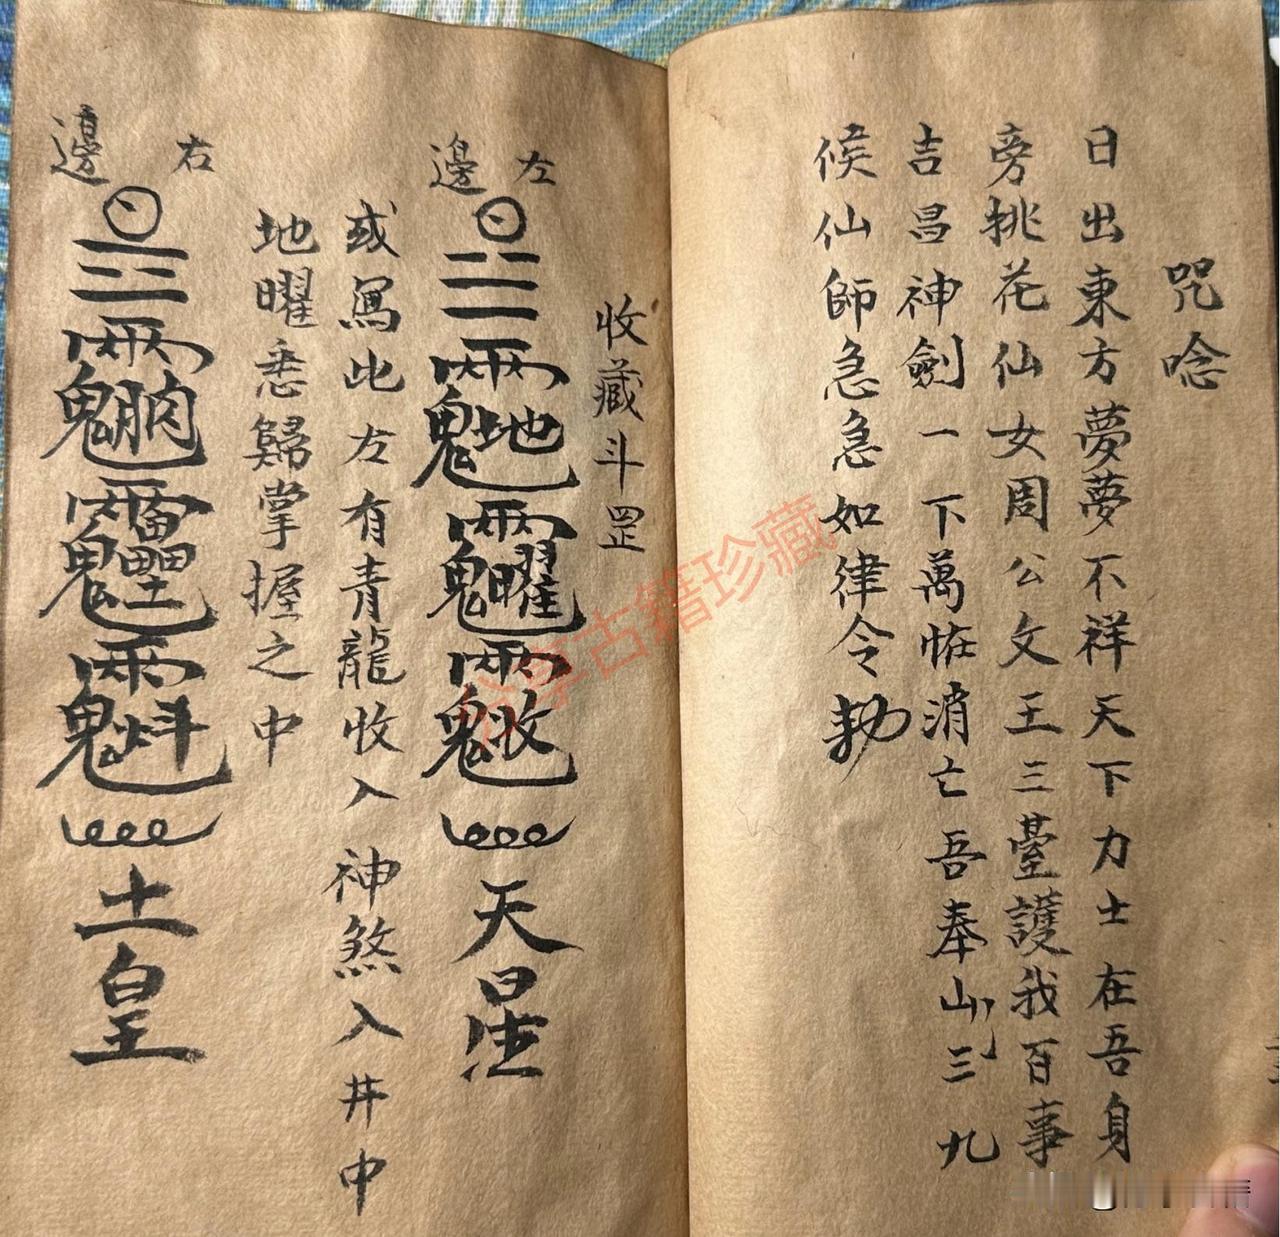 咒唸
日出東方夢夢不祥天下力士在吾身
旁挑花仙女周公文王三臺護我百事
吉昌神劍一下萬恠消亡吾奉山三九
侯仙師急急如律令勅
收藏斗罡
左邊
天星
或寫此左有青龍收入神煞入井中
地曜悉歸掌握之中
右邊
土皇
分享古籍珍藏